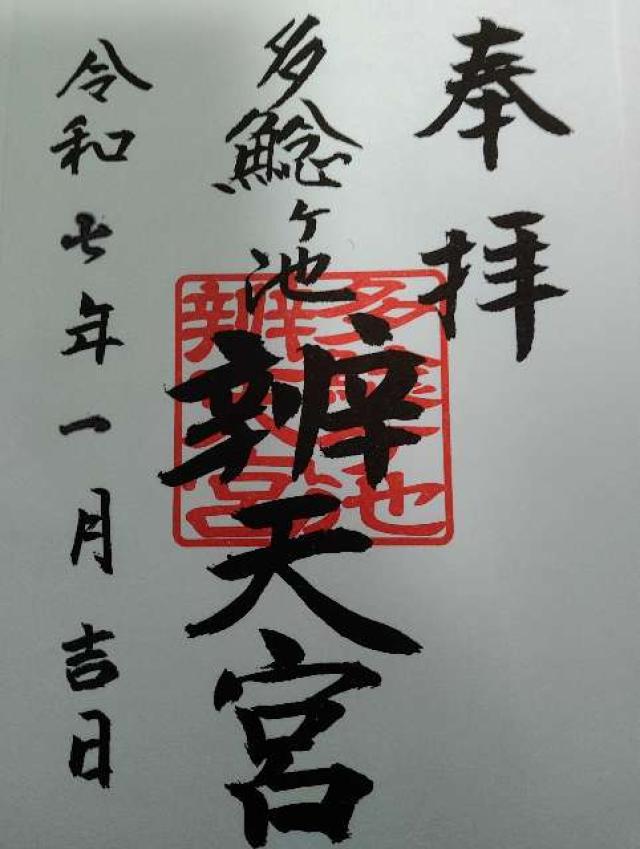 奉拝
多鯰ヶ池
辨天宮
令和七年一月吉日
多鯰ヶ池
辨天宮